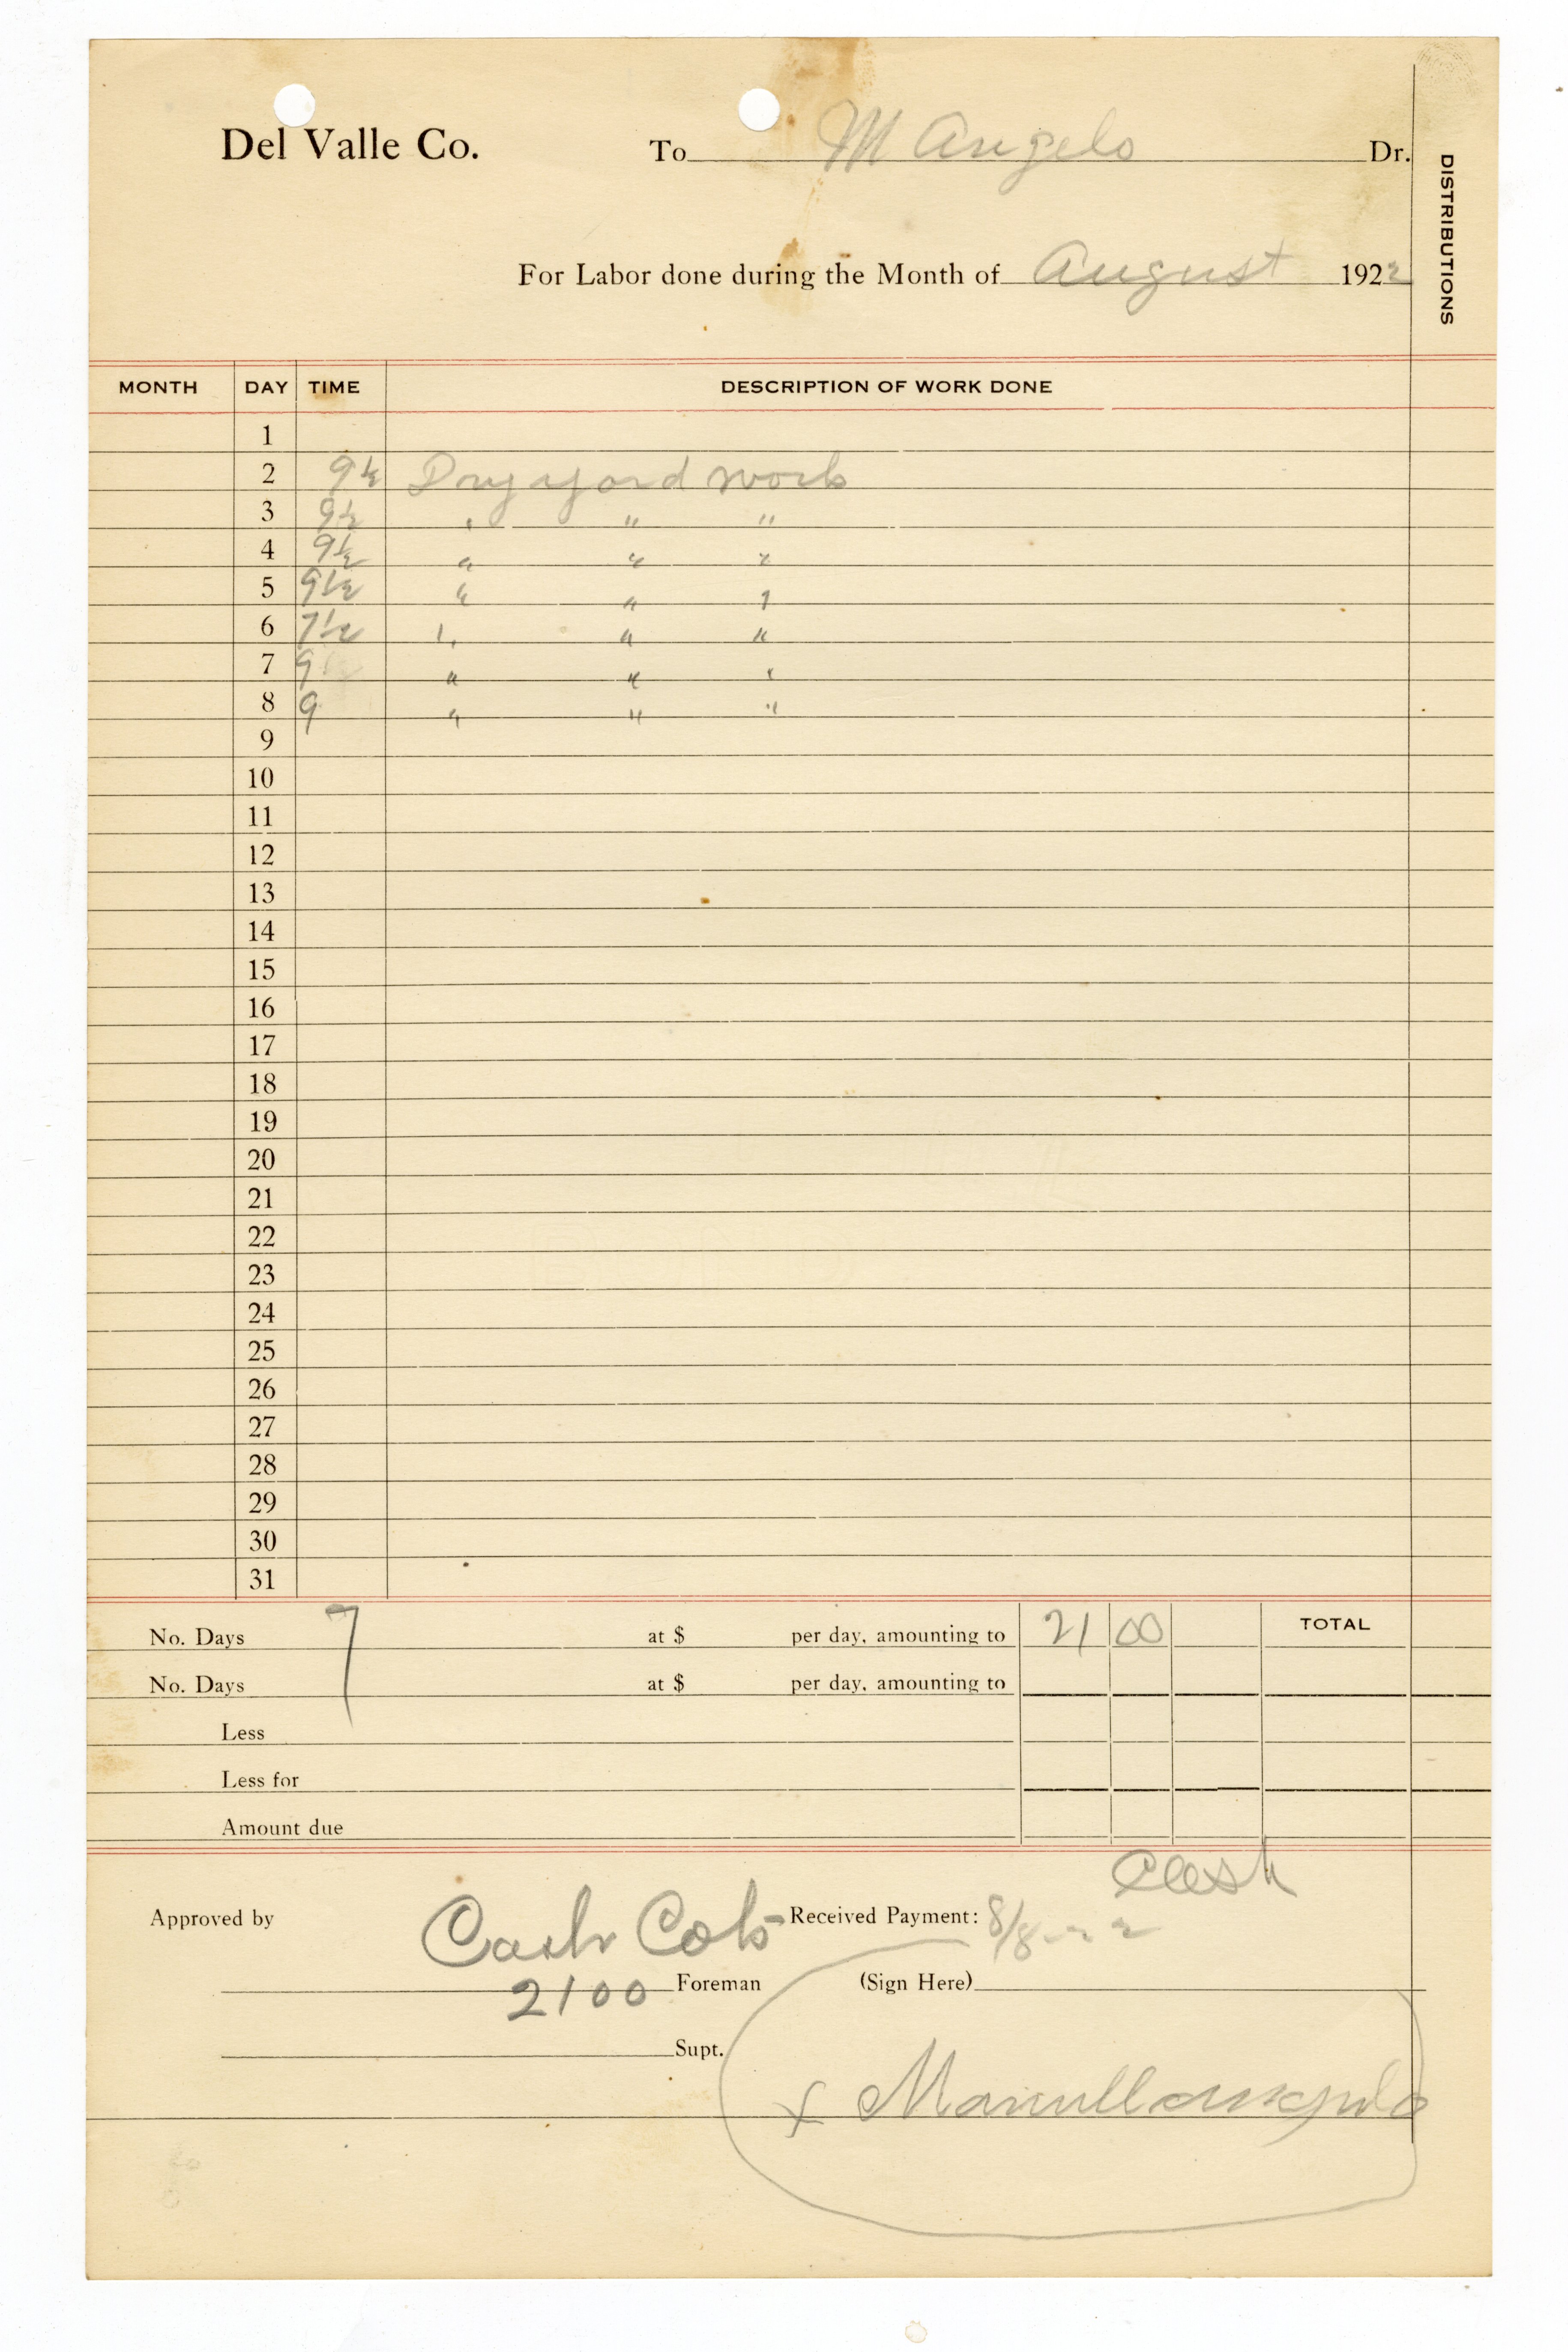 Del Valle Co. To M Angelo Dr.
DISTRIBUTIONS
For Labor done during the Month of August 1922
MONTH DAY TIME DESCRIPTION OF WORK DONE
1
2 9½ Dry yard work
3 9½ " " "
4 9½ " " "
5 9½ " " "
6 7½ " " "
7 9 " " "
8 9 " " "
9
10
11
12
13
14
15
16
17
18
19
20
21
22
23
24
25
26
27
28
29
30
31
No. Days 7 at $ per day, amounting to 21 00 TOTAL
No. Days at $ per day, amounting to
Less
Less for
Amount due
Cash
Approved by Cash Received Payment: 8/8-22
2100 Foreman (Sign Here)
Supt.
x Manuell angelo